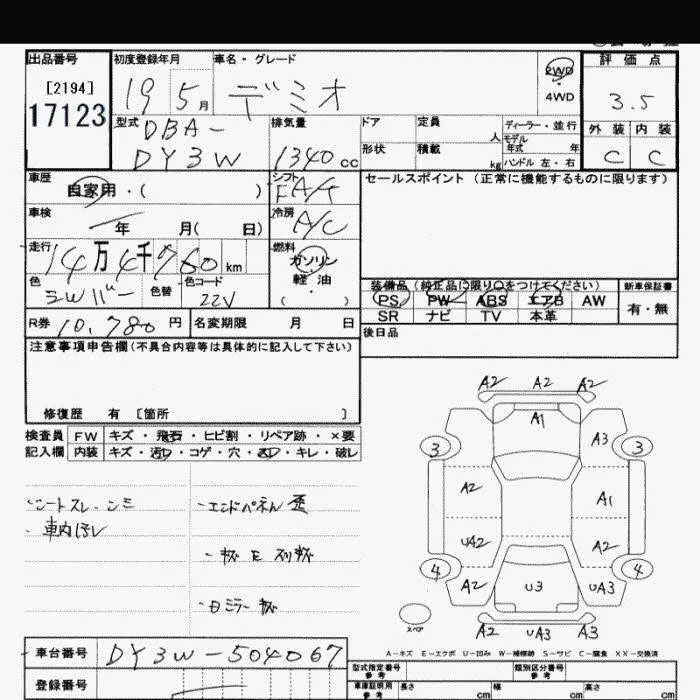 出品番号 初度登録年月 車名・グレード 2WD 評価点
[2194] 19 5月 デミオ ・ 4WD 3.5
17123 型式 DBA- 排気量 ドア 定員 人 ディーラー・並行 外装 内装
DY3W 1340cc 形状 積載 kg モデル年式 年 C C
ハンドル 左・右
車歴 自家用・( ) シフト FA/T セールスポイント (正常に機能するものに限ります)
車検 年 月( 日) 冷房 A/C
走行 14万4千760km 燃料 ガソリン
軽・油
・( )
色 シルバー 色替 色コード 22V
装備品 (純正品に限り〇をつけてください) 新車保証書
PS PW ABS エアB AW 有・無
SR ナビ TV 本革
R券 10,780円 名変期限 月 日 後日品
注意事項申告欄(不具合内容等は具体的に記入して下さい)
修復歴 有 [箇所 ]
検査員 FW キズ・飛石・ヒビ割・リペア跡・×要
記入欄 内装 キズ・汚れ・コゲ・穴・・キレ・破レ
・シートスレ、シミ ・エンドパネル 歪
・車内
・日ミラー
A2 A2 A2
A1
3 A3 3
A2 A1
UA2 A2
4 4
A2 U3 UA3
スペア A2 UA3 A3
A-キズ E-エクボ U-凹み W-補修跡 S-サビ C-腐食 XX-交換済
車台番号 DY3W-504067 型式指定番号 参考 類別区分番号 参考
登録番号 車庫証明用 参考 長さ cm 幅 cm 高さ cm